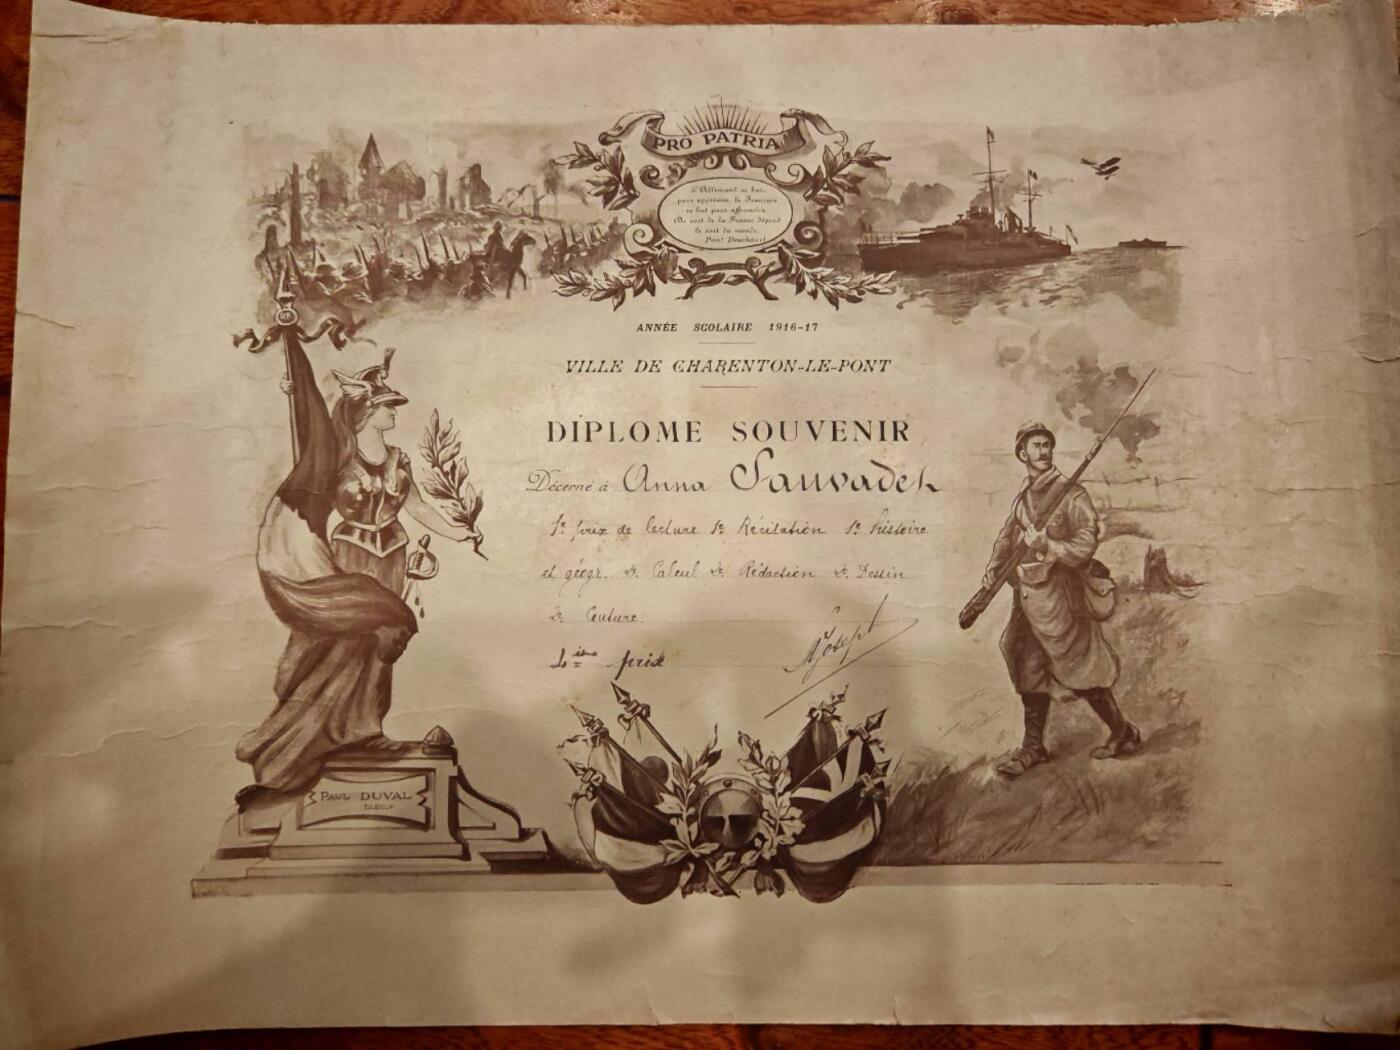 PRO PATRIA
L'Allemand se bat
pour opprimer, le Français
se bat pour affranchir.
Du sort de la France dépend
le sort du monde.
Paul
RF
ANNÉE SCOLAIRE 1916-17
VILLE DE CHARENTON-LE-PONT
DIPLOME SOUVENIR
Décerné à Anna Sauvadet
1er prix de lecture 1er Récitation 1er histoire
et géogr. 2e Calcul 2e Rédaction 2e Dessin
2e Couture.
prix
Joseph
PAUL DUVAL
ELBEUF